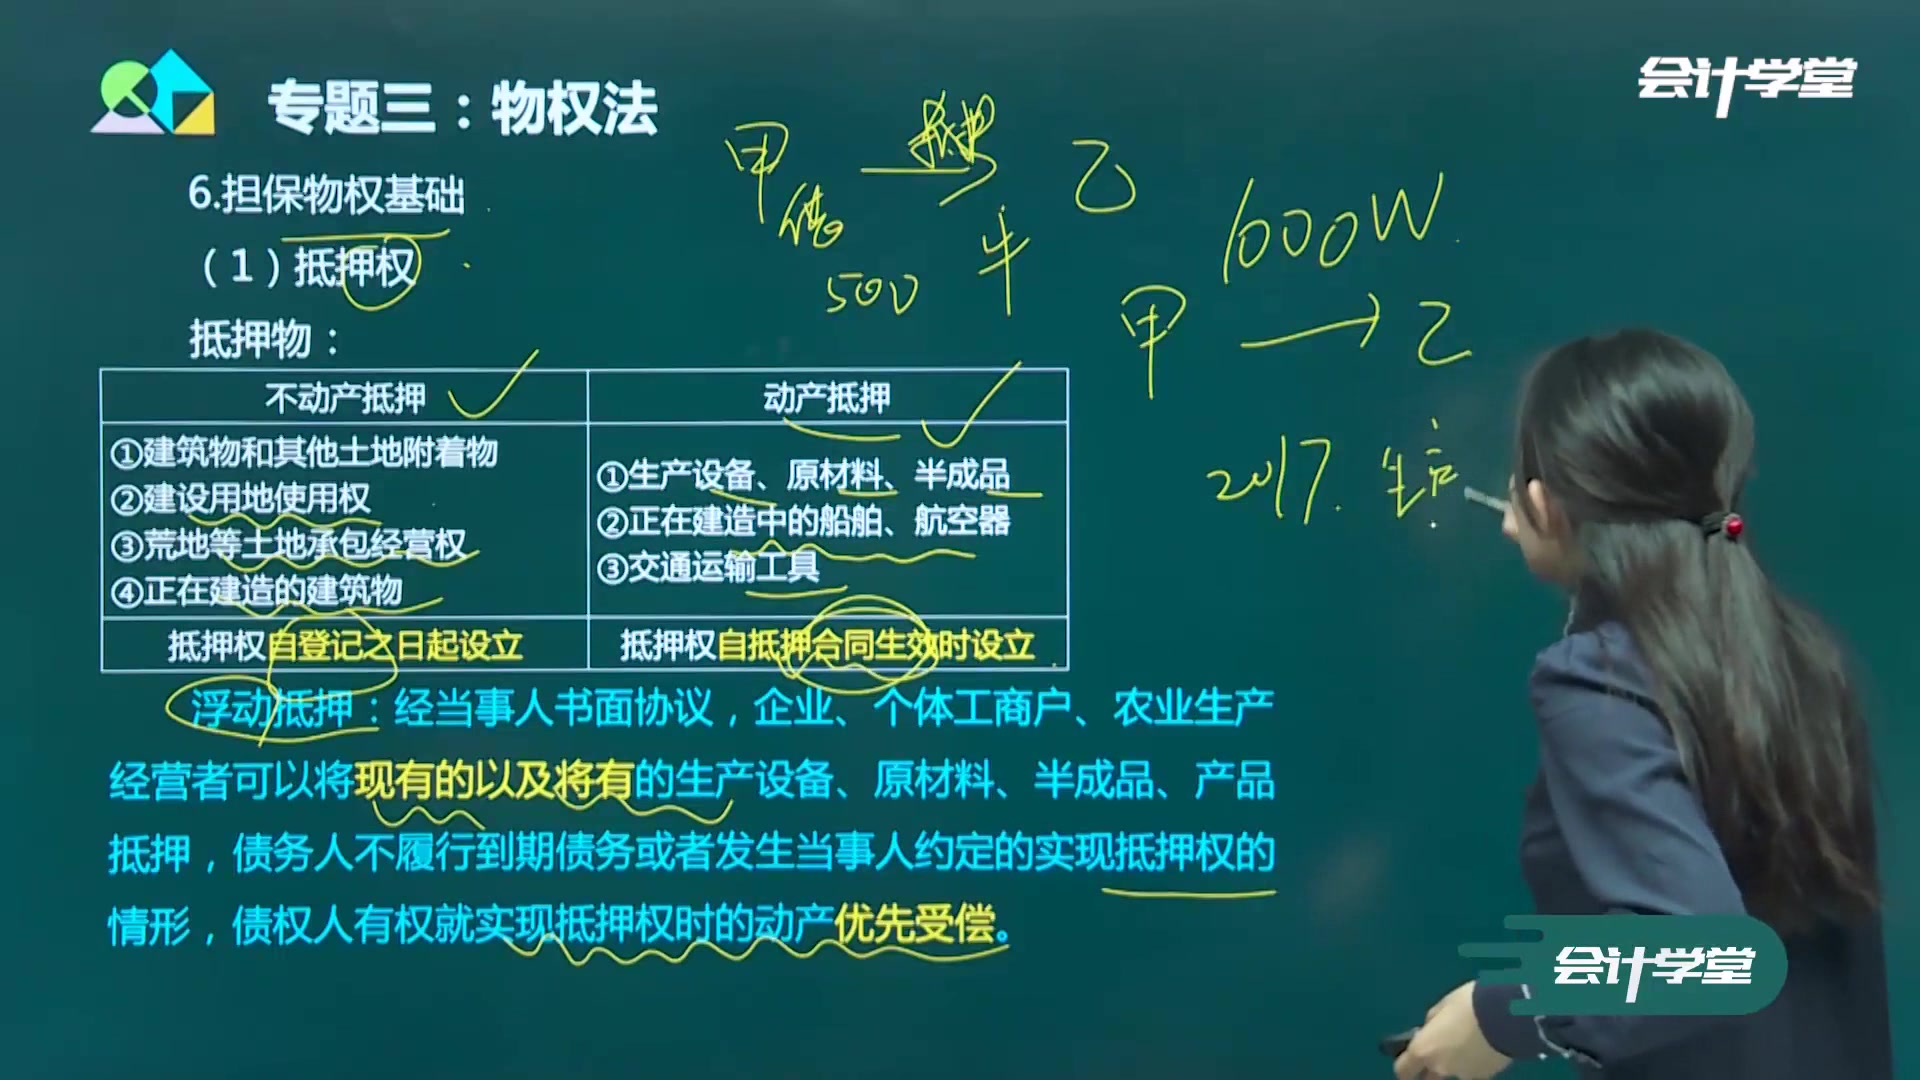 会计学堂
专题三：物权法
6.担保物权基础
（1）抵押权
抵押物：
甲 抵押 乙
借
500 牛
1000W
甲 → 乙
2017.
不动产抵押
动产抵押
①建筑物和其他土地附着物
②建设用地使用权
③荒地等土地承包经营权
④正在建造的建筑物
①生产设备、原材料、半成品
②正在建造中的船舶、航空器
③交通运输工具
抵押权自登记之日起设立
抵押权自抵押合同生效时设立
浮动抵押：经当事人书面协议，企业、个体工商户、农业生产
经营者可以将现有的以及将有的生产设备、原材料、半成品、产品
抵押，债务人不履行到期债务或者发生当事人约定的实现抵押权的
情形，债权人有权就实现抵押权时的动产优先受偿。
会计学堂